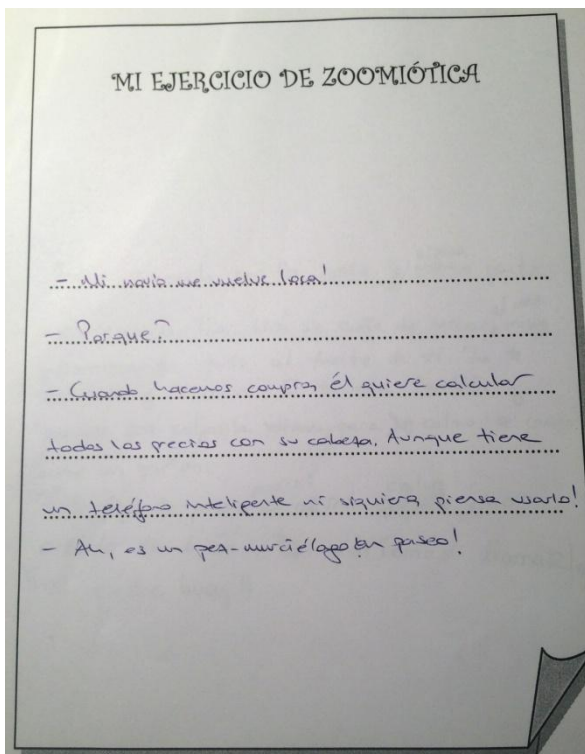 MI EJERCICIO DE ZOOMIÓTICA
- Mi novio me vuelve loca!
- Porque?
- Cuando hacemos compra, él quiere calcular
todos los precios con su cabeza. Aunque tiene
un teléfono inteligente ni siquiera piensa usarlo!
- Ah, es un pez-murciélago en paseo!